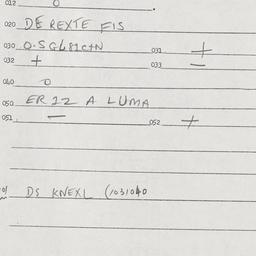 012 0
020 DE REXTE FIS
030 031 +
032 + 033 —
040 0
050 ER 12 A LUMA
051 — 052 +
DS KNEXL (1031040